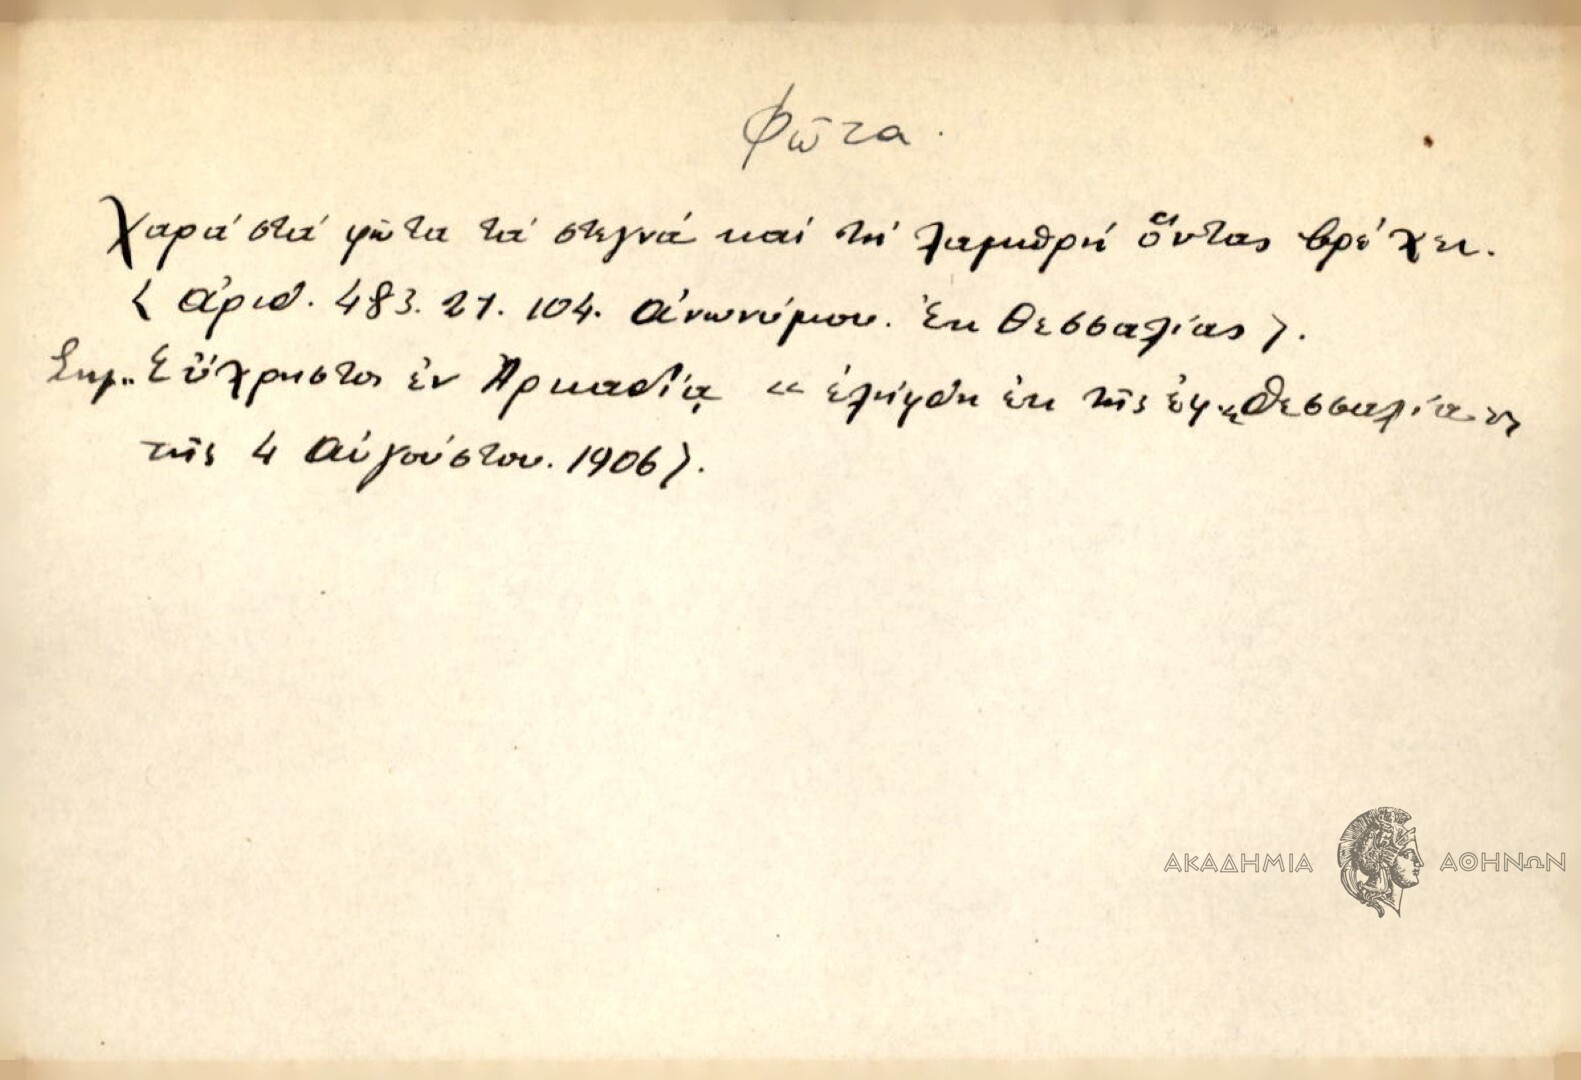 Φῶτα.
Χαρά στά φῶτα τά στεγνά καί τή λαμπρή ὅντας βρέχει.
(ἀριθ. 483. 21. 104. ἀνωνύμου. Ἐκ Θεσσαλίας).
Σημ. Εὔχρηστος ἐν Ἀρκαδίᾳ « ἐλήφθη ἐκ τῆς ἐφ. Θεσσαλία
τῆς 4 Αὐγούστου. 1906).
ΑΚΑΔΗΜΙΑ ΑΘΗΝΩΝ